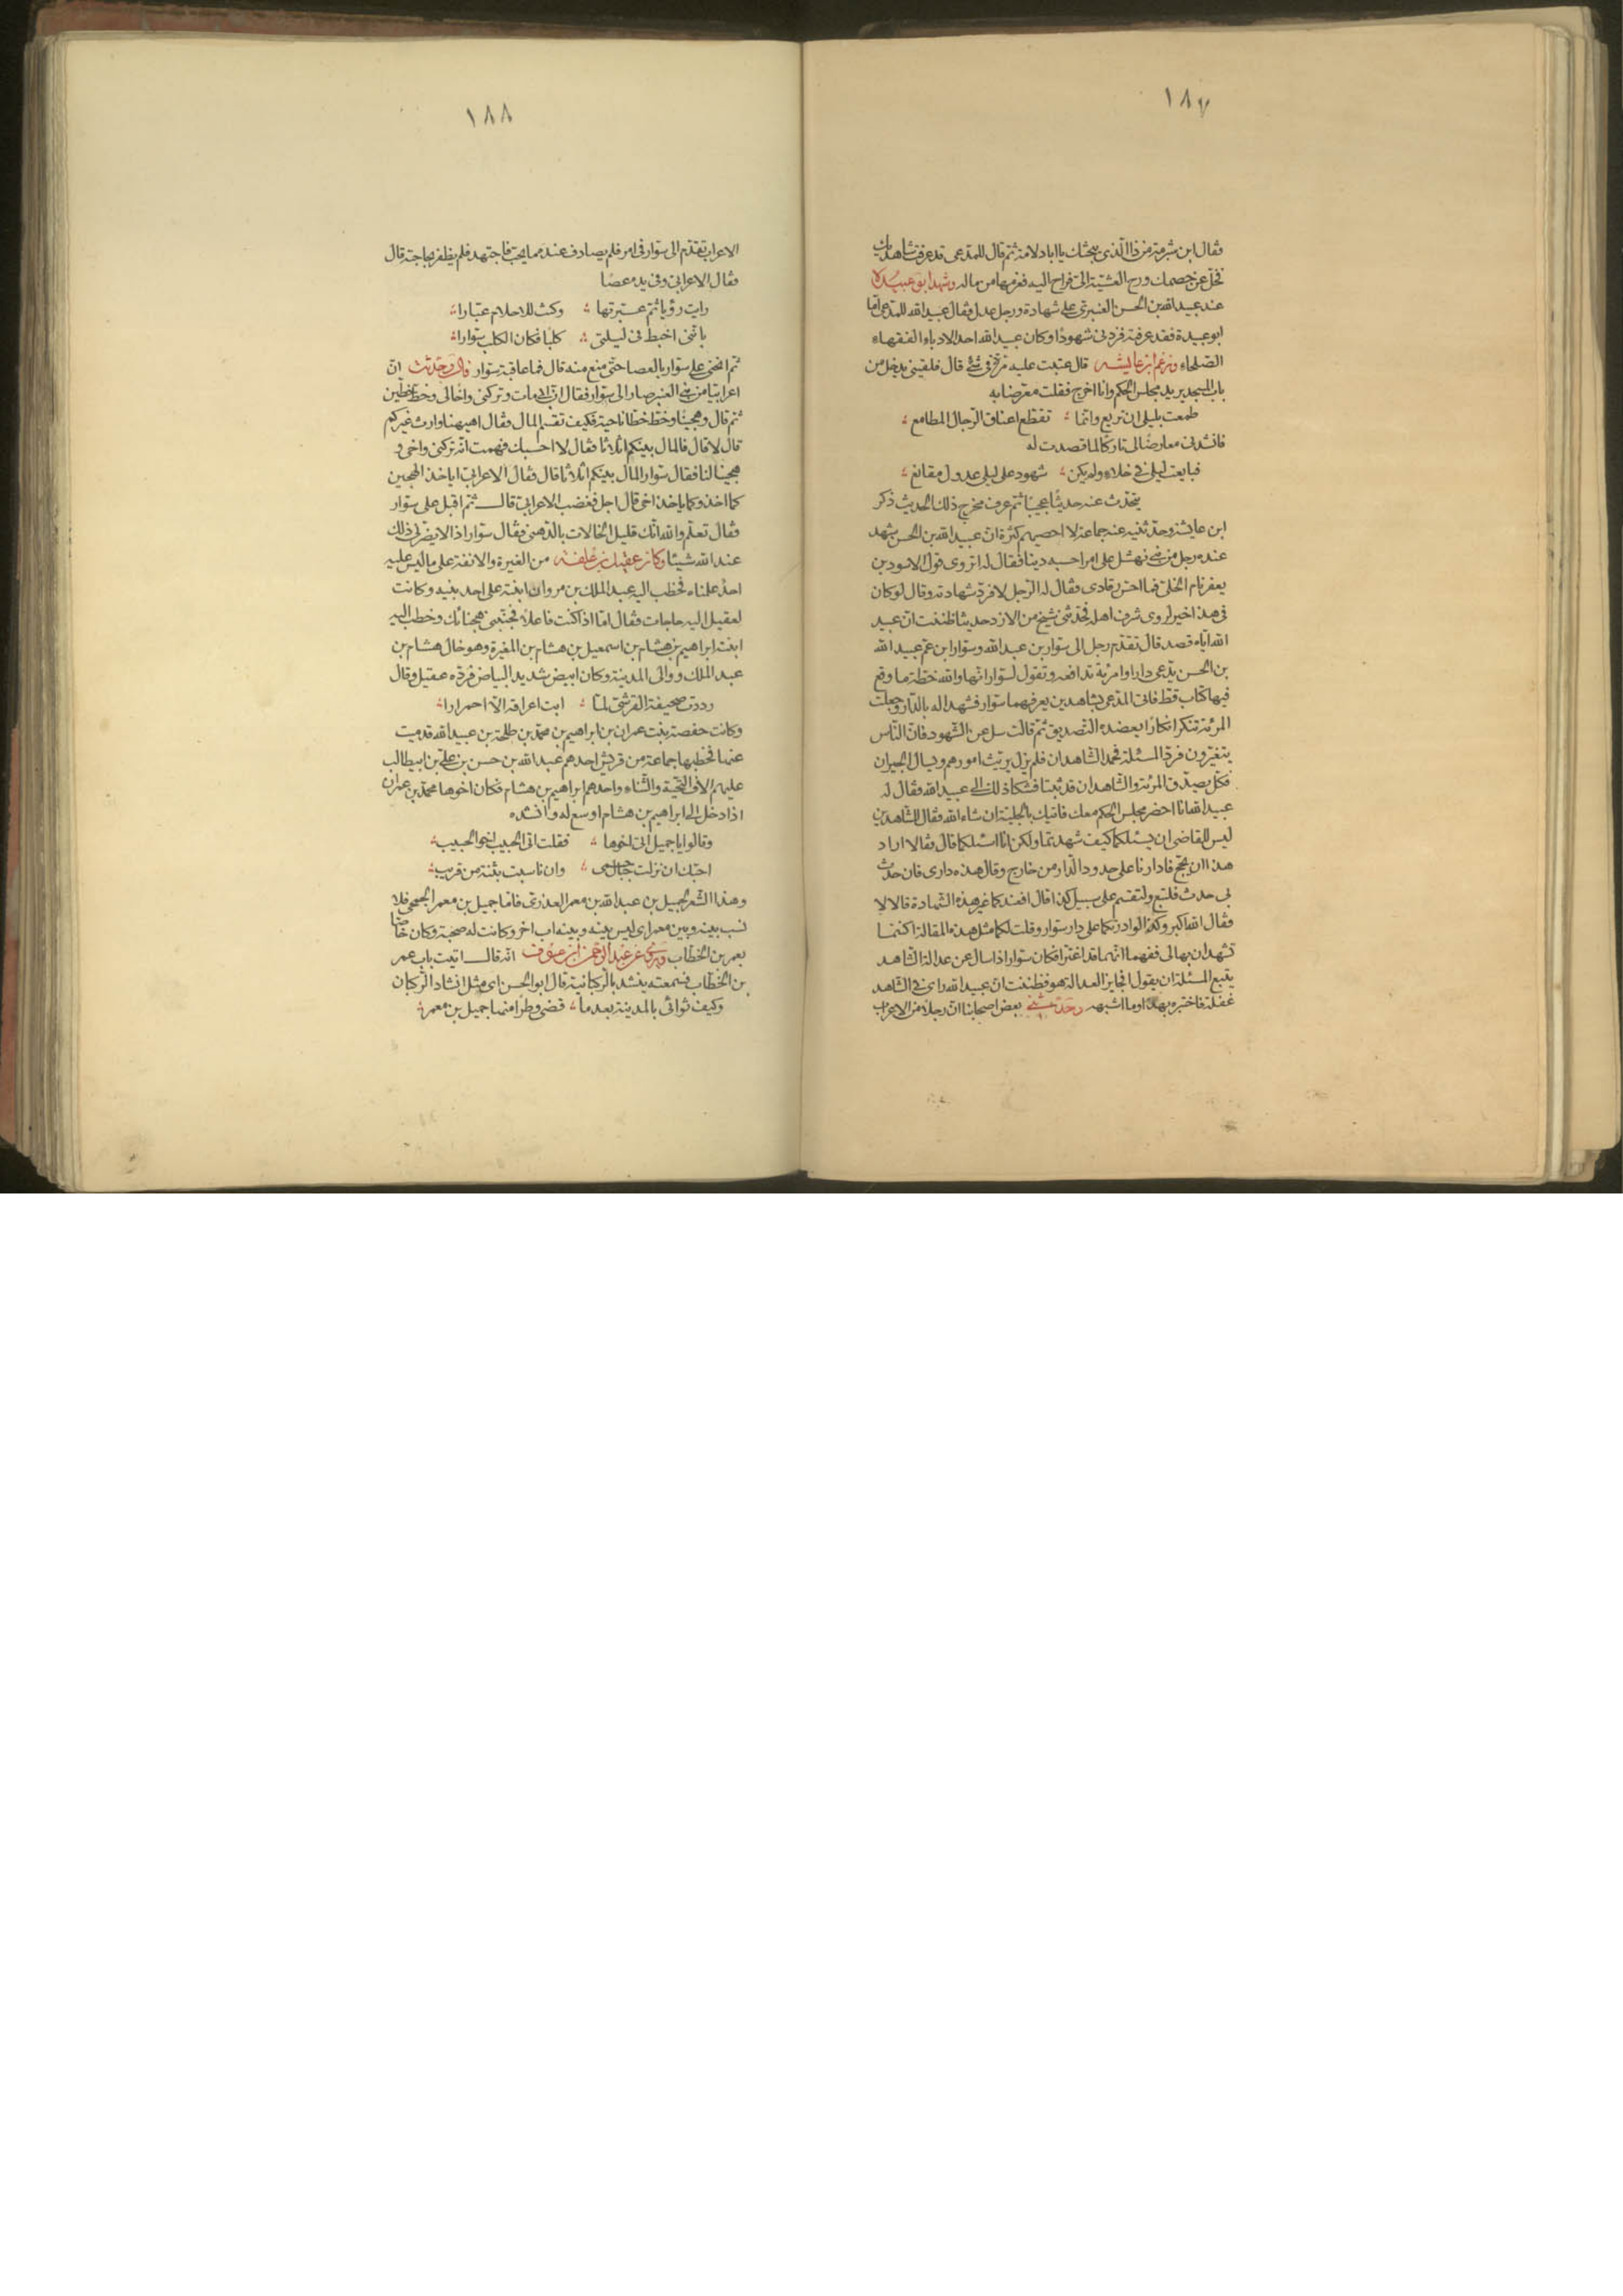 ١٨٧
فقال ابن شبرمة من ذا الذى يبحثك يا ابا دلامة ثم قال للمدعى قد عرفت شاهديك
فخل عن خصمك ورح العشية الى فراح اليه فغرمها من ماله وشهد ابو عبيدة
عند عبيد الله بن الحسن العنبرى على شهادة ورجل عدل فقال عبيد الله للمدعى اما
ابو عبيدة فقد عرفته فزدنى شهودا وكان عبيد الله احد الادباء الفقهاء
الصلحاء وزعم ابن عايشة قال عتبت عليه مرة فى شئ قال فلقينى يدخل من
باب المسجد يريد مجلس الحكم وانا اخرج فقلت معرضا به
طمعت بليلى ان تريع وانما تقطع اعناق الرجال المطامع
فانشدنى معارضا لى تاركا لما قصدت له
فبايعت ليلى فى خلاء ولم يكن شهود على ليلى عدول مقانع
يتحدث عنه حديثا عجيبا ثم عرف مخرج ذلك الحديث ذكر
ابن عايشة وحدثنيه عنه جماعة لا احصيهم كثرة ان عبيد الله بن الحسن شهد
عنده رجل من بنى نهشل على امر احسبه دينا فقال له اتروى قول الاسود بن
يعفر نام الخلى فما احس رقادى فقال له الرجل لا فرد شهادته وقال لو كان
فى هذا خير لروى شرف اهله فحدثنى شيخ من الازد حديثا ظننت ان عبيد
الله اياه قصد قال تقدم رجل الى سوار بن عبد الله وسوار ابن عم عبيد الله
بن الحسن يدعى دارا وامرئة تدافعه وتقول لسوار انها والله خطة ما وقع
فيها كتاب قط فاتى المدعى بشاهدين يعرفهما سوار فشهدا له بالدار وجعلت
المرئة تنكر انكارا يعضده التصديق ثم قالت سل عن الشهود فان الناس
يتغيرون فرد المسئلة فحمد الشاهدان فلم يزل يريث امورهم ويسال الجيران
فكل يصدق المرئة والشاهدان قد ثبتا فشكا ذلك الى عبيد الله فقال له
عبيد الله انا احضر مجلس الحكم معك فاتيك بالجلية ان شاء الله فقال للشاهدين
ليس للقاضى ان يسئلكما كيف شهدتما ولكن انا اسئلكما قال فقالا اراد
هذا ان يحج فادارنا على حدود الدار من خارج وقال هذه دارى فان حدث
بى حدث فلتبع ولتقسم على سبيل كذا قال افعندكما غير هذه الشهادة قالا لا
فقال الله اكبر وكذا لو ادرتكما على دار سوار وقلت لكما مثل هذه المقالة اكنتما
تشهدان بها لى ففهما انهما قد اغترا فكان سوار اذا سال عن عدالة الشاهد
يتبع المسئلة ان يقول افجايز العدالة هو فظننت ان عبيد الله راى فى الشاهد
غفلة فاختبره بهذا وما اشبهه وحدثنى بعض اصحابنا ان رجلا من الاعراب
١٨٨
الاعراب تقدم الى سوار فى امر فلم يصادف عنده ما يحب فاجتهد فلم يظفر بحاجته قال
فقال الاعرابى وفى يده عصا
رايت رؤيا ثم عبرتها وكنت للاحلام عبارا
باننى اخبط فى ليلتى كلبا فكان الكلب سوارا
ثم انحنى على سوار بالعصا حتى منع منه قال فما عاقبه سوار قال وحدثت ان
اعرابيا من بنى العنبر صار الى سوار فقال ان ابى مات وتركنى واخا لى وخط خطين
ثم قال وهجينا وخط خطا ناحية فكيف نقسم المال فقال اهيهنا وارث غيركم
قال لا قال فالمال بينكم اثلاثا فقال لا احسبك فهمت انه تركنى واخى و
هجينا لنا فقال سوار المال بينكم اثلاثا قال فقال الاعرابى اياخذ الهجين
كما اخذ وكما ياخذ اخى قال اجل فغضب الاعرابى قال ثم اقبل على سوار
فقال تعلم والله انك قليل الخالات بالدهنى فقال سوار اذا لا يضرنى ذلك
عند الله شيئا وكان عقيل بن علفة من الغيرة والانفة على ما ليس عليه
احد علمناه فخطب اليه عبد الملك بن مروان ابنته على احد بنيه وكانت
لعقيل اليه حاجات فقال اما اذا كنت فاعلا فجنبنى هجنائك وخطب اليه
ابنته ابراهيم بن هشام بن اسمعيل بن هشام بن المغيرة وهو خال هشام بن
عبد الملك ووالى المدينة وكان ابيض شديد البياض فرده عقيل وقال
رددت صحيفة القرشى لما ابت اعراقه الا احمرارا
وكانت حفصة بنت عمران بن ابراهيم بن محمد بن طلحة بن عبيد الله قد ميت
عنها فخطبها جماعة من قريش احدهم عبد الله بن حسن بن على بن ابيطالب
عليهم الاف التحية والثناء واحدهم ابراهيم بن هشام فكان اخوها محمد بن عمران
اذا دخل الى ابراهيم بن هشام اوسع له وانشده
وقالوا يا جميل اتى اخوها فقلت اتى الحبيب اخو الحبيب
احبك ان نزلت جبال حسمى وان ناسبت بثنة من قريب
وهذا الشعر لجميل بن عبد الله بن معمر العذرى فاما جميل بن معمر الجمحى فلا
نسب بينه وبين معمر اى ليس بينه وبينه اب اخر وكانت له صحبة وكان خاصا
بعمر بن الخطاب ويروى عن عبد الرحمن بن عوف انه قال اتيت باب عمر
بن الخطاب فسمعته ينشد بالركبانية قال ابو الحسن اى مثل انشاد الركبان
وكيف ثوائى بالمدينة بعد ما قضى وطرا منها جميل بن معمر